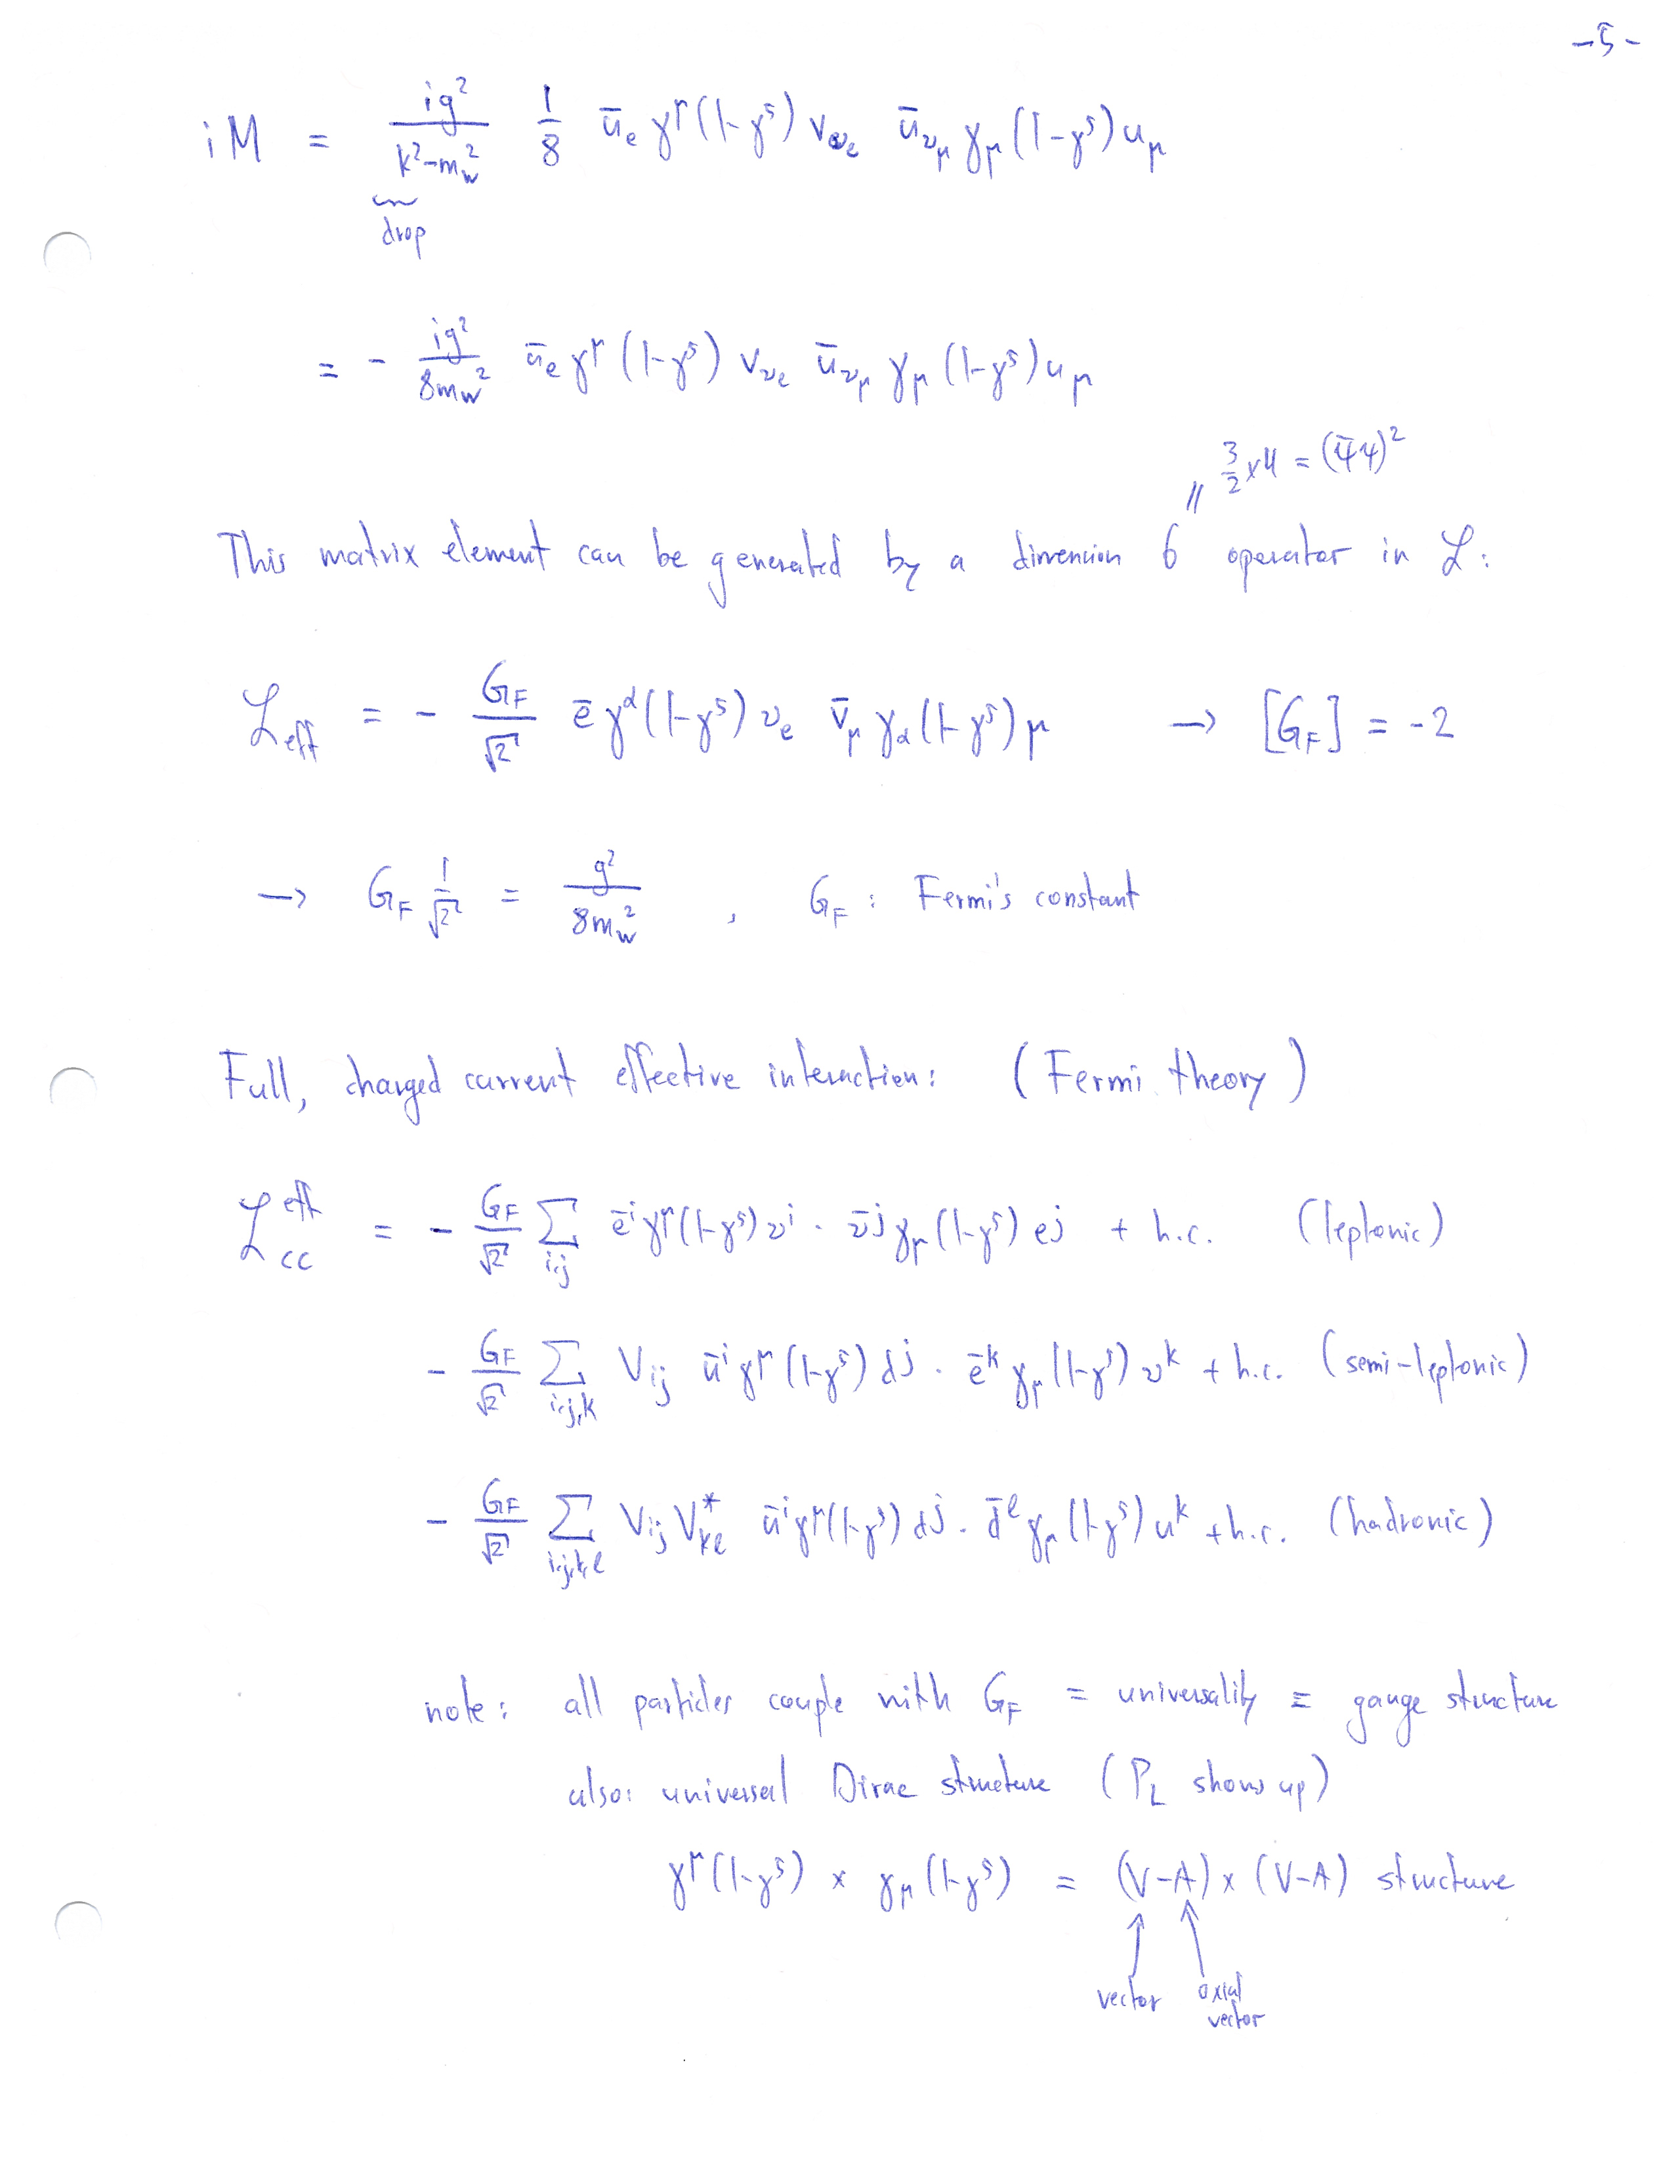 -5-
iM = ig²/(k²-m_W²) 1/8 ū_e γ^μ(1-γ⁵) v_{ν_e} ū_{ν_μ} γ_μ(1-γ⁵) u_μ
drop
= - ig²/(8m_W²) ū_e γ^μ (1-γ⁵) v_{ν_e} ū_{ν_μ} γ_μ (1-γ⁵) u_μ
// 3/2 x 4 = (ψ̄ψ)²
This matrix element can be generated by a dimension 6 operator in ℒ:
ℒ_eff = - G_F/√2 ē γ^α(1-γ⁵) ν_e ν̄_μ γ_α(1-γ⁵) μ → [G_F] = -2
→ G_F 1/√2 = g²/(8m_W²) , G_F : Fermi's constant
Full, charged current effective interaction: (Fermi theory)
ℒ_cc^eff = - G_F/√2 Σ_{i,j} ē^i γ^μ(1-γ⁵) ν^i · ν̄^j γ_μ(1-γ⁵) e^j + h.c. (leptonic)
- G_F/√2 Σ_{i,j,k} V_{ij} ū^i γ^μ(1-γ⁵) d^j · ē^k γ_μ(1-γ⁵) ν^k + h.c. (semi-leptonic)
- G_F/√2 Σ_{i,j,k,ℓ} V_{ij} V*_{kℓ} ū^i γ^μ(1-γ⁵) d^j · d̄^ℓ γ_μ(1-γ⁵) u^k + h.c. (hadronic)
note: all particles couple with G_F = universality = gauge structure
also: universal Dirac structure (P_L shows up)
γ^μ(1-γ⁵) x γ_μ(1-γ⁵) = (V-A) x (V-A) structure
vector axial
vector